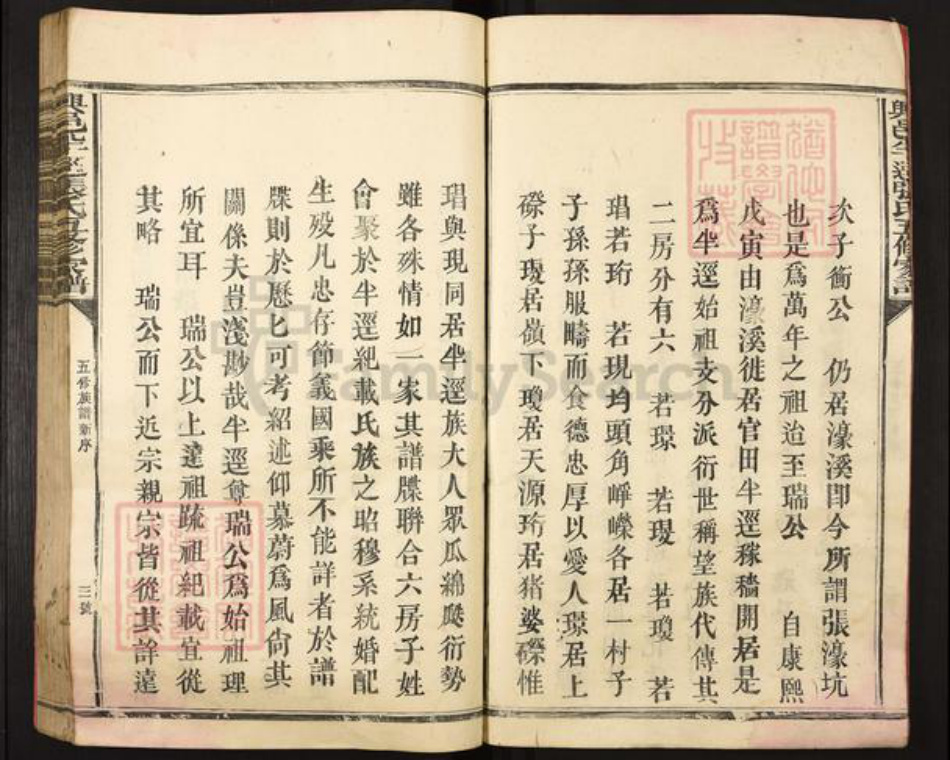 次子衝公 仍居濠溪卽今所謂張濠坑
也是爲萬年之祖迨至瑞公 自康熙
戊寅由濠溪徙居官田半逕稼穡開居是
爲半逕始祖支分派衍世稱望族代傳其
二房分有六 若璟 若瑷 若瓊 若
琩若珩 若現均頭角崢嶸各居一村子
子孫孫服疇而食德忠厚以愛人璟居上
磜子瑷居嶺下瓊居天源珩居猪婆磜惟
琩與現同居半逕族大人眾瓜綿瓞衍勢
雖各殊情如一家其譜牒聯合六房子姓
會聚於半逕紀載氏族之昭穆系統婚配
生殁凡忠存節義國乘所不能詳者於譜
牒則於歷匕可考紹述仰慕蔚爲風尙其
關係夫豈淺尠哉半逕尊瑞公爲始祖理
所宜耳 瑞公以上遠祖疏祖紀載宜從
其略 瑞公而下近宗親宗皆從其詳遠
五修族譜新序
三號
FamilySearch